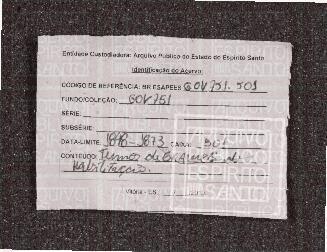 Entidade Custodiadora: Arquivo Público do Estado do Espírito Santo
Identificação do Acervo:
CÓDIGO DE REFERÊNCIA: BR ESAPEES GOV751.501
FUNDO/COLEÇÃO: GOV751
SÉRIE:
SUBSÉRIE:
DATA-LIMITE: 1873 CAIXA:
CONTEÚDO: Termos de
Habilitação.
Vitória - ES
ARQUIVO
PÚBLICO
ESPÍRITO
SANTO